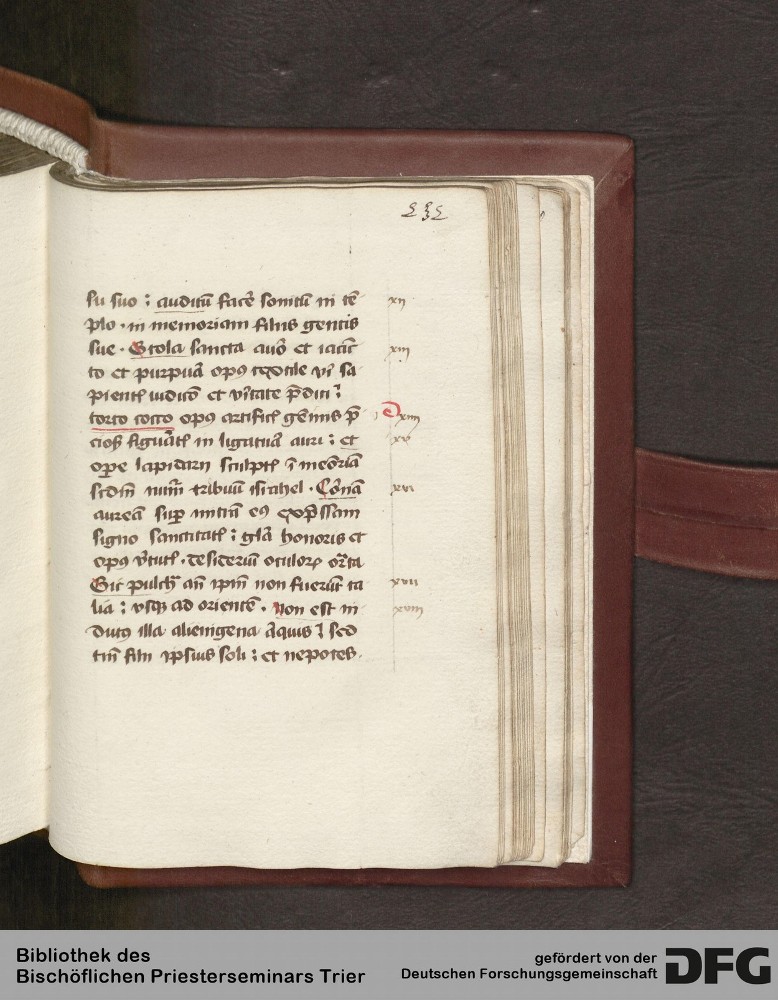 232
su suo : auditū facē sonitū in tē
plo · in memoriam filiis gentis
sue · Stola sancta auō et iacīc
to et purpuā opꝰ textile viī sa
pientꝭ iudicō et vītate p̄diti :
torto cocco opꝰ artificꝭ gēmis p̄
ciosꝭ figuātꝭ in ligatuā auri : et
oꝑe lapidarii sculptꝭ ī meōriā
scdm̄ num̄ tribuū israhel · Cōnā
aureā suꝑ mitrā eꝰ exp̄ssam
signo sanctitatꝭ : glā honoris et
opꝰ v̄tutꝭ · desideriū oculoꝝ orāta
Sic pulcħ an̄ ip̄m non fuerūt ta
lia : vsqꝫ ad orientē · Non est in
dutꝰ illa alienigena aliquis ⁊ sed
tm̄ filii ipsius soli : et nepotes ·
xii
xiii
xiiii
xv
xvi
xvii
xviii
Bibliothek des
Bischöflichen Priesterseminars Trier
gefördert von der
Deutschen Forschungsgemeinschaft
DFG